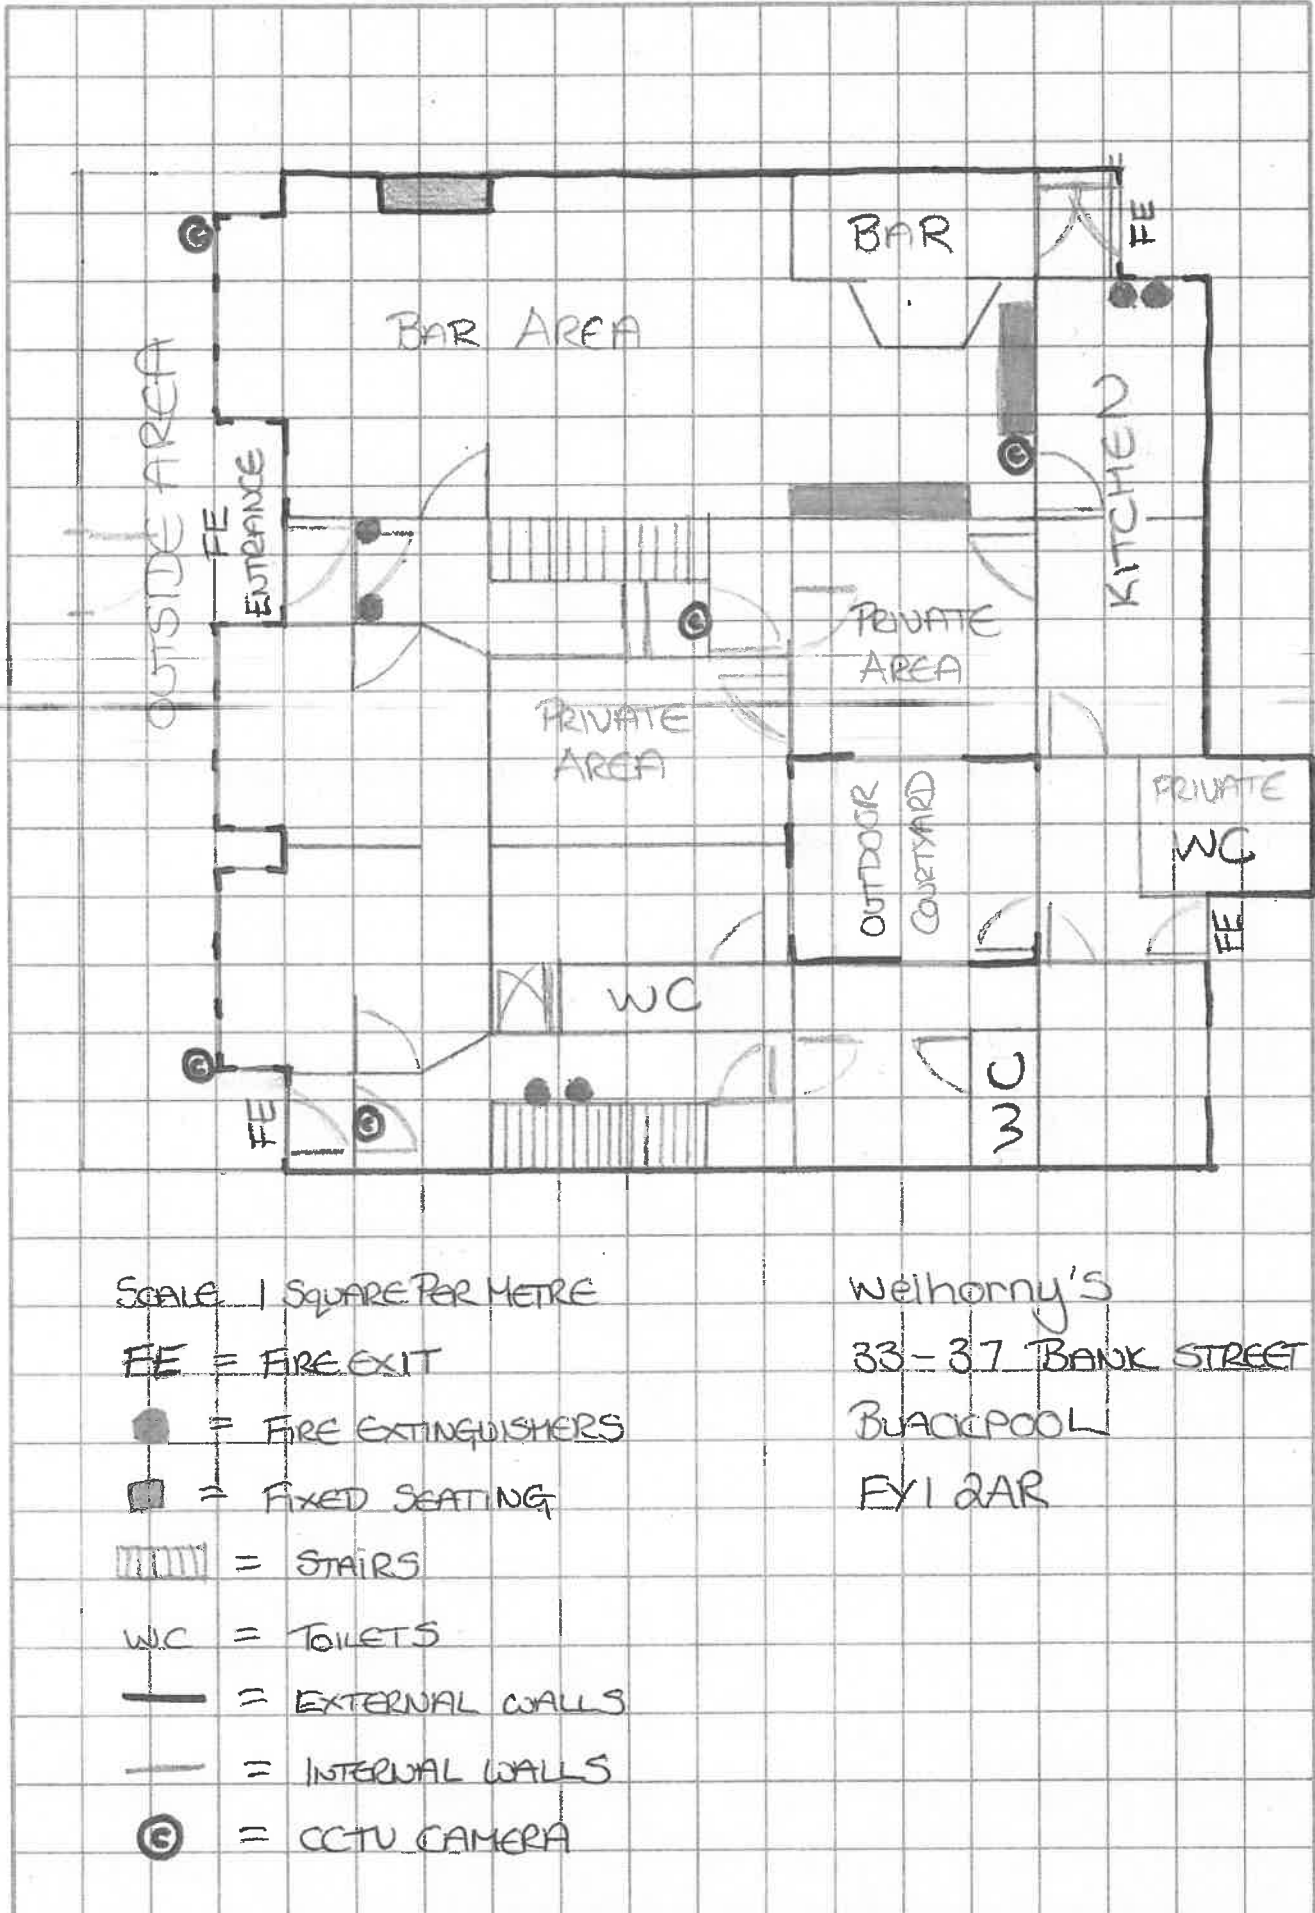 BAR
FE
BAR AREA
OUTSIDE AREA
FE
ENTRANCE
KITCHEN
PRIVATE
AREA
PRIVATE
AREA
OUTDOOR
COURTYARD
PRIVATE
WC
FE
WC
WC
FE
SCALE 1 SQUARE PER METRE
FE = FIRE EXIT
= FIRE EXTINGUISHERS
= FIXED SEATING
= STAIRS
WC = TOILETS
= EXTERNAL WALLS
= INTERNAL WALLS
C = CCTV CAMERA
Weihorny's
33-37 BANK STREET
BLACKPOOL
FY1 2AR